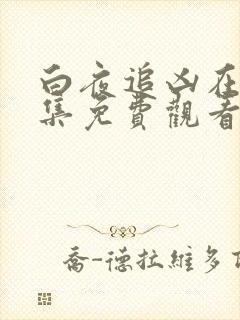 白夜追凶在
集免費觀看
喬-德拉維多